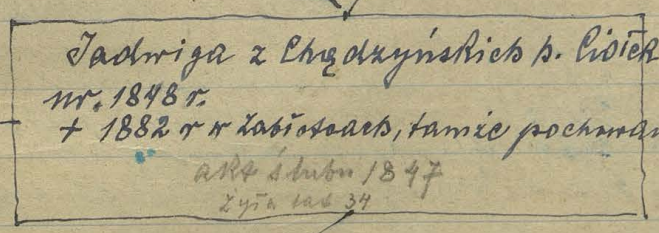 Jadwiga z Chądzyńskich h. Ciołek
ur. 1848 r.
+ 1882 r w Zabłociach, tamże pochowan
akt ślubu 1847
żyła lat 34